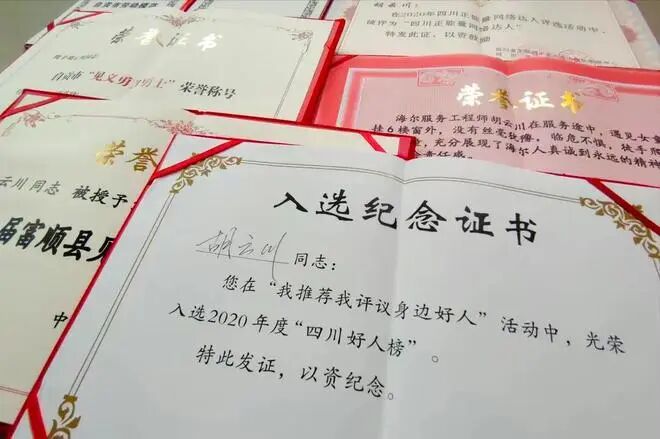 胡云川
在2020年四川正能量网络达人评选活动中,
被评为“四川正能量网络达人”
特发此证,以资鼓励
荣誉证书
自贡市“见义勇为勇士”荣誉称号
荣誉证书
海尔服务工程师胡云川在服务途中,遇见女童
挂6楼窗外,没有丝毫犹豫,临危不惧,扶手脚
充分展现了海尔人真诚到永远的精神
责任感
荣誉
云川同志 被授予
届富顺县
中
入选纪念证书
胡云川同志:
您在“我推荐我评议身边好人”活动中,光荣
入选2020年度“四川好人榜”。
特此发证,以资纪念。